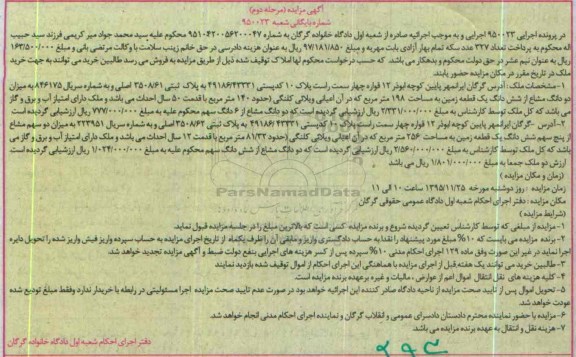 آگهی مزایده (مرحله دوم)
شماره بایگانی شعبه ۹۵۰۰۲۳
در پرونده اجرایی ۹۵۰۰۲۳ اجرایی و به موجب اجرائیه صادره از شعبه اول دادگاه خانواده گرگان به شماره ۹۵۱۰۴۲۰۰۵۶۲۰۰۰۴۷ محکوم علیه سید محمد جواد میر کریمی فرزند سید حبیب
اله محکوم به پرداخت تعداد ۳۲۷ عدد سکه تمام بهار آزادی بابت مهریه و مبلغ ۹۷/۱۸۱/۸۵۰ ریال به عنوان هزینه دادرسی در حق خانم زینب سلامت با وکالت مرتضی بائی و مبلغ ۱۶۳/۵۰۰/۰۰۰
ریال به عنوان نیم عشر در حق دولت محکوم و بدهکار می باشد که حسب درخواست محکوم لها املاک توقیف شده ذیل از طریق مزایده به فروش می رسد طالبین خرید می توانند به جهت خرید
ملک در تاریخ مقرر در مکان مزایده حضور یابند.
۱-مشخصات ملک: آدرس گرگان ایرانمهر پایین کوچه ابوذر ۱۲ قواره چهار سمت راست پلاک ۱۰ کدپستی ۴۹۱۸۶/۴۳۳۲۱ به پلاک ثبتی ۳۵۰۸/۶۱ اصلی و به شماره سریال ۸۴۶۱۷۵ به میزان
دو دانگ مشاع از شش دانگ یک قطعه زمین به مساحت ۱۹۸ متر مربع که در آن اعیانی ویلائی کلنگی (حدود ۱۴۰ متر مربع با قدمت ۵۰ سال احداث می باشد و ملک دارای امتیاز آب و برق و گاز
می باشد که کل ملک توسط کارشناس به مبلغ ۲/۳۳۱/۰۰۰/۰۰۰ ریال ارزشیابی گردیده است که دو دانگ مشاع از ۶ دانگ سهم محکوم علیه به مبلغ ۷۷۷/۰۰۰/۰۰۰ ریال ارزشیابی گردیده است
۲-آدرس -گرگان ایرانمهر پایین کوچه ابوذر ۱۲ قواره چهار سمت راست پلاک ۱۰ کدپستی ۴۹۱۸۶/۴۳۳۲۱ به پلاک ثبتی ۳۵۰۸/۶۲ اصلی و به شماره سریال ۲۳۴۹۵۱ به میزان دو سهم مشاع
از پنج سهم شش دانگ یک قطعه زمین به مساحت ۲۵۶ متر مربع که در آن اعیانی ویلائی کلنگی (حدود ۸۱/۳۲ متر مربع با قدمت ۱۲ سال احداث می باشد و ملک دارای امتیاز آب و برق و گاز می
باشد که کل ملک توسط کارشناس به مبلغ ۲/۵۶۰/۰۰۰/۰۰۰ ریال ارزشیابی گردیده است که دو دانگ مشاع از شش دانگ سهم محکوم علیه به مبلغ ۱/۰۲۴/۰۰۰/۰۰۰ ریال ارزشیابی گردیده است
ارزش دو ملک جمعا به مبلغ ۱/۸۰۱/۰۰۰/۰۰۰ ریال می باشد
(زمان و مکان مزایده)
زمان مزایده : روز دوشنبه مورخه ۱۳۹۵/۱۱/۲۵ ساعت ۱۰ الی ۱۱
مکان مزایده : دفتر اجرای احکام شعبه اول دادگاه عمومی حقوقی گرگان
(شرایط مزایده)
۱-مزایده از مبلغی که توسط کارشناس تعیین گردیده شروع و برنده مزایده کسی است که بالاترین مبلغ را در جلسه مزایده قبول نماید.
۲-برنده مزایده می بایست که ۱۰% مبلغ مورد پیشنهاد را نقدا به حساب دادگستری واریز و مابقی آن را ظرف یکماه از تاریخ اجرای مزایده به حساب سپرده واریز فیش واریز شده را تحویل دایره
اجرا نماید در غیر این صورت وفق ماده ۱۲۹ اجرای احکام مدنی ۱۰% سپرده پس از کسر هزینه های اجرایی بنفع دولت ضبط و آگهی مزایده تجدید خواهد شد.
۳-طالبین خرید می توانند یک هفته قبل از اجرای مزایده با هماهنگی این اجرای احکام از اموال توقیف شده بازدید نمایند
۴-کلیه هزینه های نقل انتقال اموال اعم از عوارض ، مالیات و غیره برعهده برنده مزایده است.
۵-تحویل اموال پس از تایید صحت مزایده از ناحیه دادگاه صادر کننده این اجرائیه خواهد بود در صورت عدم تایید صحت مزایده اجرا مسئولیتی در رابطه با خریدار ندارد وفقط مبلغ تودیع شده
عودت خواهد شد.
۶-مزایده با حضور نماینده محترم دادستان دادسرای عمومی و انقلاب گرگان و نماینده اجرای احکام مدنی انجام خواهد شد.
۷-هزینه نقل و انتقال به عهده برنده مزایده می باشد.
دفتر اجرای احکام شعبه اول دادگاه خانواده گرگان
ParsNamadData